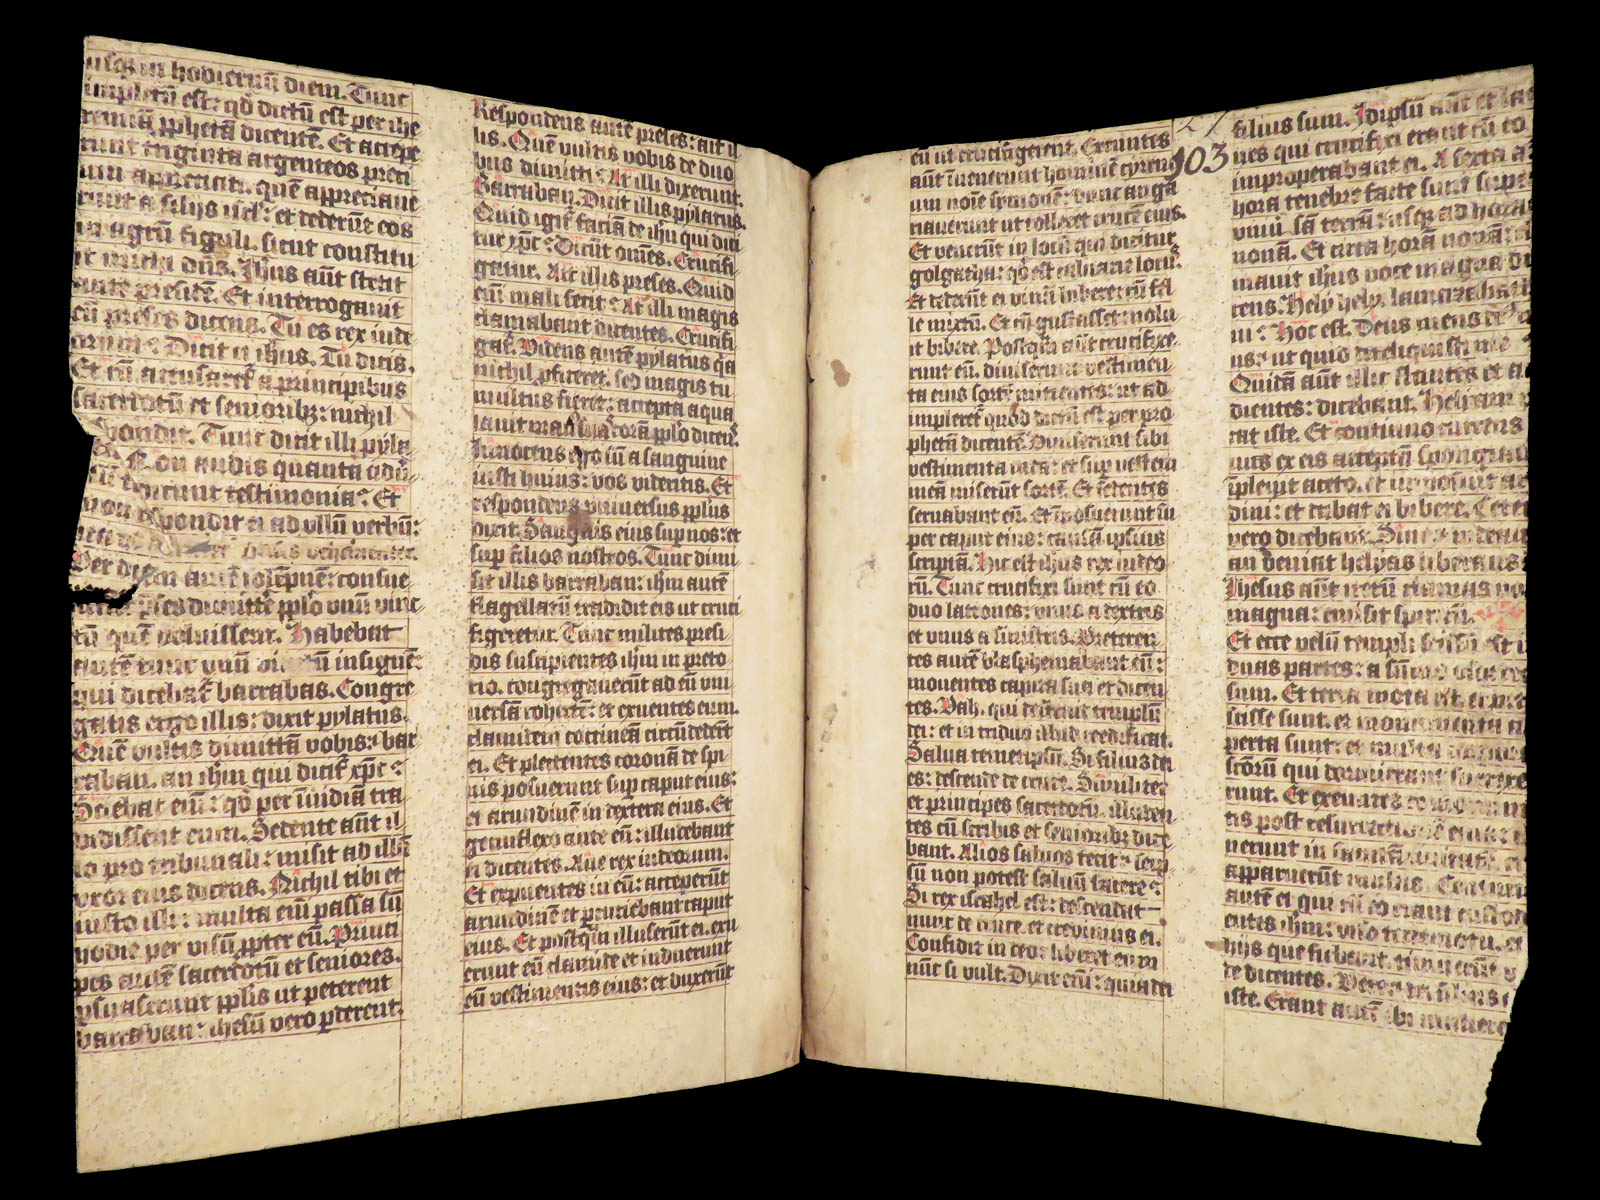 usqꝫ in hodiernū diem. Tunc
impletū est: qd̄ dictū est per ihe
remiā ꝓphetā dicentē. Et accepe
runt triginta argenteos preci
um appreciati. quē appreciaue
runt a filijs isrl̄: et dederūt eos
in agrū figuli. sicut constitu
it michi dn̄s. Ihūs aūt stetit
ante presidē. Et interrogauit
eū preses dicens. Tu es rex iude
orum? Dicit ei ihūs. Tu dicis.
Et cū accusaret̄ a principibus
sacerdotū et senioribꝫ: nichil
pondit. Tunc dicit illi pyla
on audis quanta adū
dicunt testimonia? Et
non respondit ei ad ullū verbū:
preses vehementer.
Per diem autē solēpnē: consue
pses dimittē pp̄lo unū vinc
tū quē voluissent. Habebat
autē tunc unū vinctū insignē:
qui dicebat̄ barrabas. Congre
gatis ergo illis: dixit pylatus.
Quē vultis dimittā vobis: bar
raban. an ihm̄ qui dicit̄ xp̄c?
Sciebat eīm: qd̄ per īuidiā tra
didissent eum. Sedente aūt il
lo pro tribunali: misit ad illū
uxor eius dicens. Nichil tibi et
iusto illi: multa eīm passa sū
hodie per visū ꝓpter eū. Princi
pes autē sacerdotū et seniores.
psuaserunt pp̄lis ut peterent
barraban: ihesū vero pderent.
Respondens autē preses: ait il
lis. Quē vultis vobis de duo
bus dimitti? At illi dixerunt.
Barraban. Dicit illis pylatus.
Quid igit̄ faciā de ihū qui dici
tur xp̄c? Dicūt om̄es. Crucifi
gatur. Ait illis preses. Quid
eīm mali fecit? At illi magis
clamabant dicentes. Crucifi
gat̄. Videns autē pylatus qa
nichil ꝓficeret. sed magis tu
multus fieret: accepta aqua
lauit manus corā pp̄lo dicens.
Innocens ego sū a sanguine
iusti huius: vos videritis. Et
respondens vniuersus pp̄lus
dixit. Sanguis eius sup nos: et
sup filios nostros. Tunc dimi
sit illis barraban: ihm̄ autē
flagellatū tradidit eis ut cruci
figeretur. Tunc milites presi
dis suscipientes ihm̄ in preto
rio. congregauerūt ad eū vni
uersā cohortē: et exuentes eum.
clamidem coccineā circūdederūt
ei. Et plectentes coronā de spi
nis posuerunt sup caput eius:
et arundinē in dextera eius. Et
genu flexo ante eū: illudebant
ei dicentes. Aue rex iudeorum.
Et expuentes in eū: acceperūt
arundinē et pcuciebant caput
eius. Et postq̄m illuserūt ei. exu
erunt eū clamide et induerunt
eū vestimentis eius: et duxerūt
27
103
eū ut crucifigerent. Exeuntes
aūt īuenerunt hominē cyrenē
um noīe symonē: hunc anga
riauerunt ut tolleret crucē eius.
Et venerūt in locū qui dicitur
golgatha: qd̄ est caluarie locus.
Et dederūt ei vinū bibere: cū fel
le mixtū. Et cū gustasset: nolu
it bibere. Postq̄m aūt crucifixe
runt eū. diuiserunt vestimen
ta eius sortē mittentes: ut ad
impleret̄ quod dictū est per pro
phetā dicentē. Diuiserunt sibi
vestimenta mea: et sup vestem
meā miserūt sortē. Et sedentes
seruabant eū. Et īposuerunt sū
per caput eius: causā ipsius
scriptā. Hic est ihūs rex iudeo
rū. Tunc crucifixi sunt cū eo
duo latrones: vnus a dextris
et vnus a sinistris. Pretereū
tes autē blasphemabant eū:
mouentes capita sua et dicen
tes. Vah. qui destruit templū
dei: et in triduo illud reedificat.
Salua temetipsū. Si filius dei
es: descende de cruce. Similiter
et principes sacerdotū. illuden
tes cū scribis et senioribꝫ dice
bant. Alios saluos fecit: seip
sū non potest saluū facere?
Si rex israhel est: descendat
nunc de cruce. et credimus ei.
Confidit in deo: liberet eum
nūc si vult. Dixit eīm: quia dei
filius sum. Idipsū aūt et lat
nes qui crucifixi erant cū eo
improperabant ei. A sexta a
hora tenebre facte sunt sup
vniū sā terrā: usqꝫ ad horā
nonā. Et circa horā nonā: cl
mauit ihūs voce magna di
cens. Hely hely. lamazabath
ni? Hoc est. Deus meus de
us: ut quid dereliquisti me
Quidā aūt illic stantes et a
dientes: dicebant. Helyam
cat iste. Et continuo currens
unus ex eis acceptā spongiā
īpleuit aceto. et imposuit a
dini: et dabat ei bibere. Cete
vero dicebant. Sine: videam
an veniat helyas liberans
Ihesus aūt iterū clamās vo
magna: emisit spiritū.
Et ecce velū templi scissū est
duas partes: a sūmo usqꝫ deo
sum. Et terra mota est. et pe
scisse sunt. et monumenta a
perta sunt: et multa corpora
sc̄orū qui dormierant surrexe
runt. Et exeuntes de monum
tis post resurrectionē eius:
nerunt in sanctā ciuitatē. et
apparuerūt multis. Centurio
autē et qui cū eo erant custod
entes ihm̄: viso terremotu. et
hijs que fiebant. timuerūt
de dicentes. Vere dei filius
iste. Erant autē ibi muliere